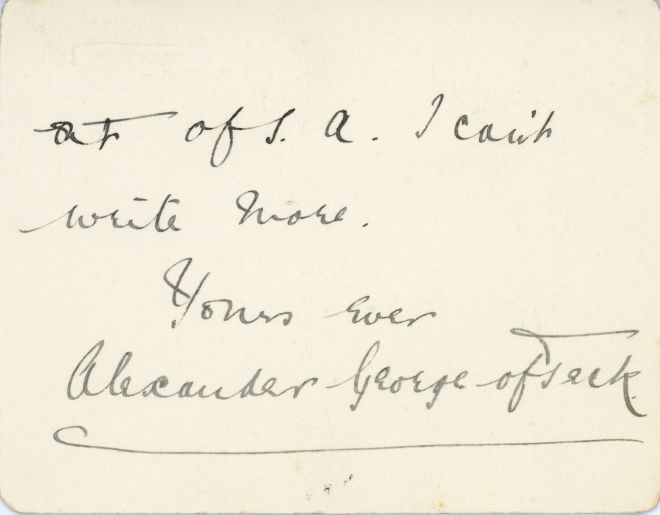 at of S. A. I can't
write more.
Yours ever
Alexander George of Teck.